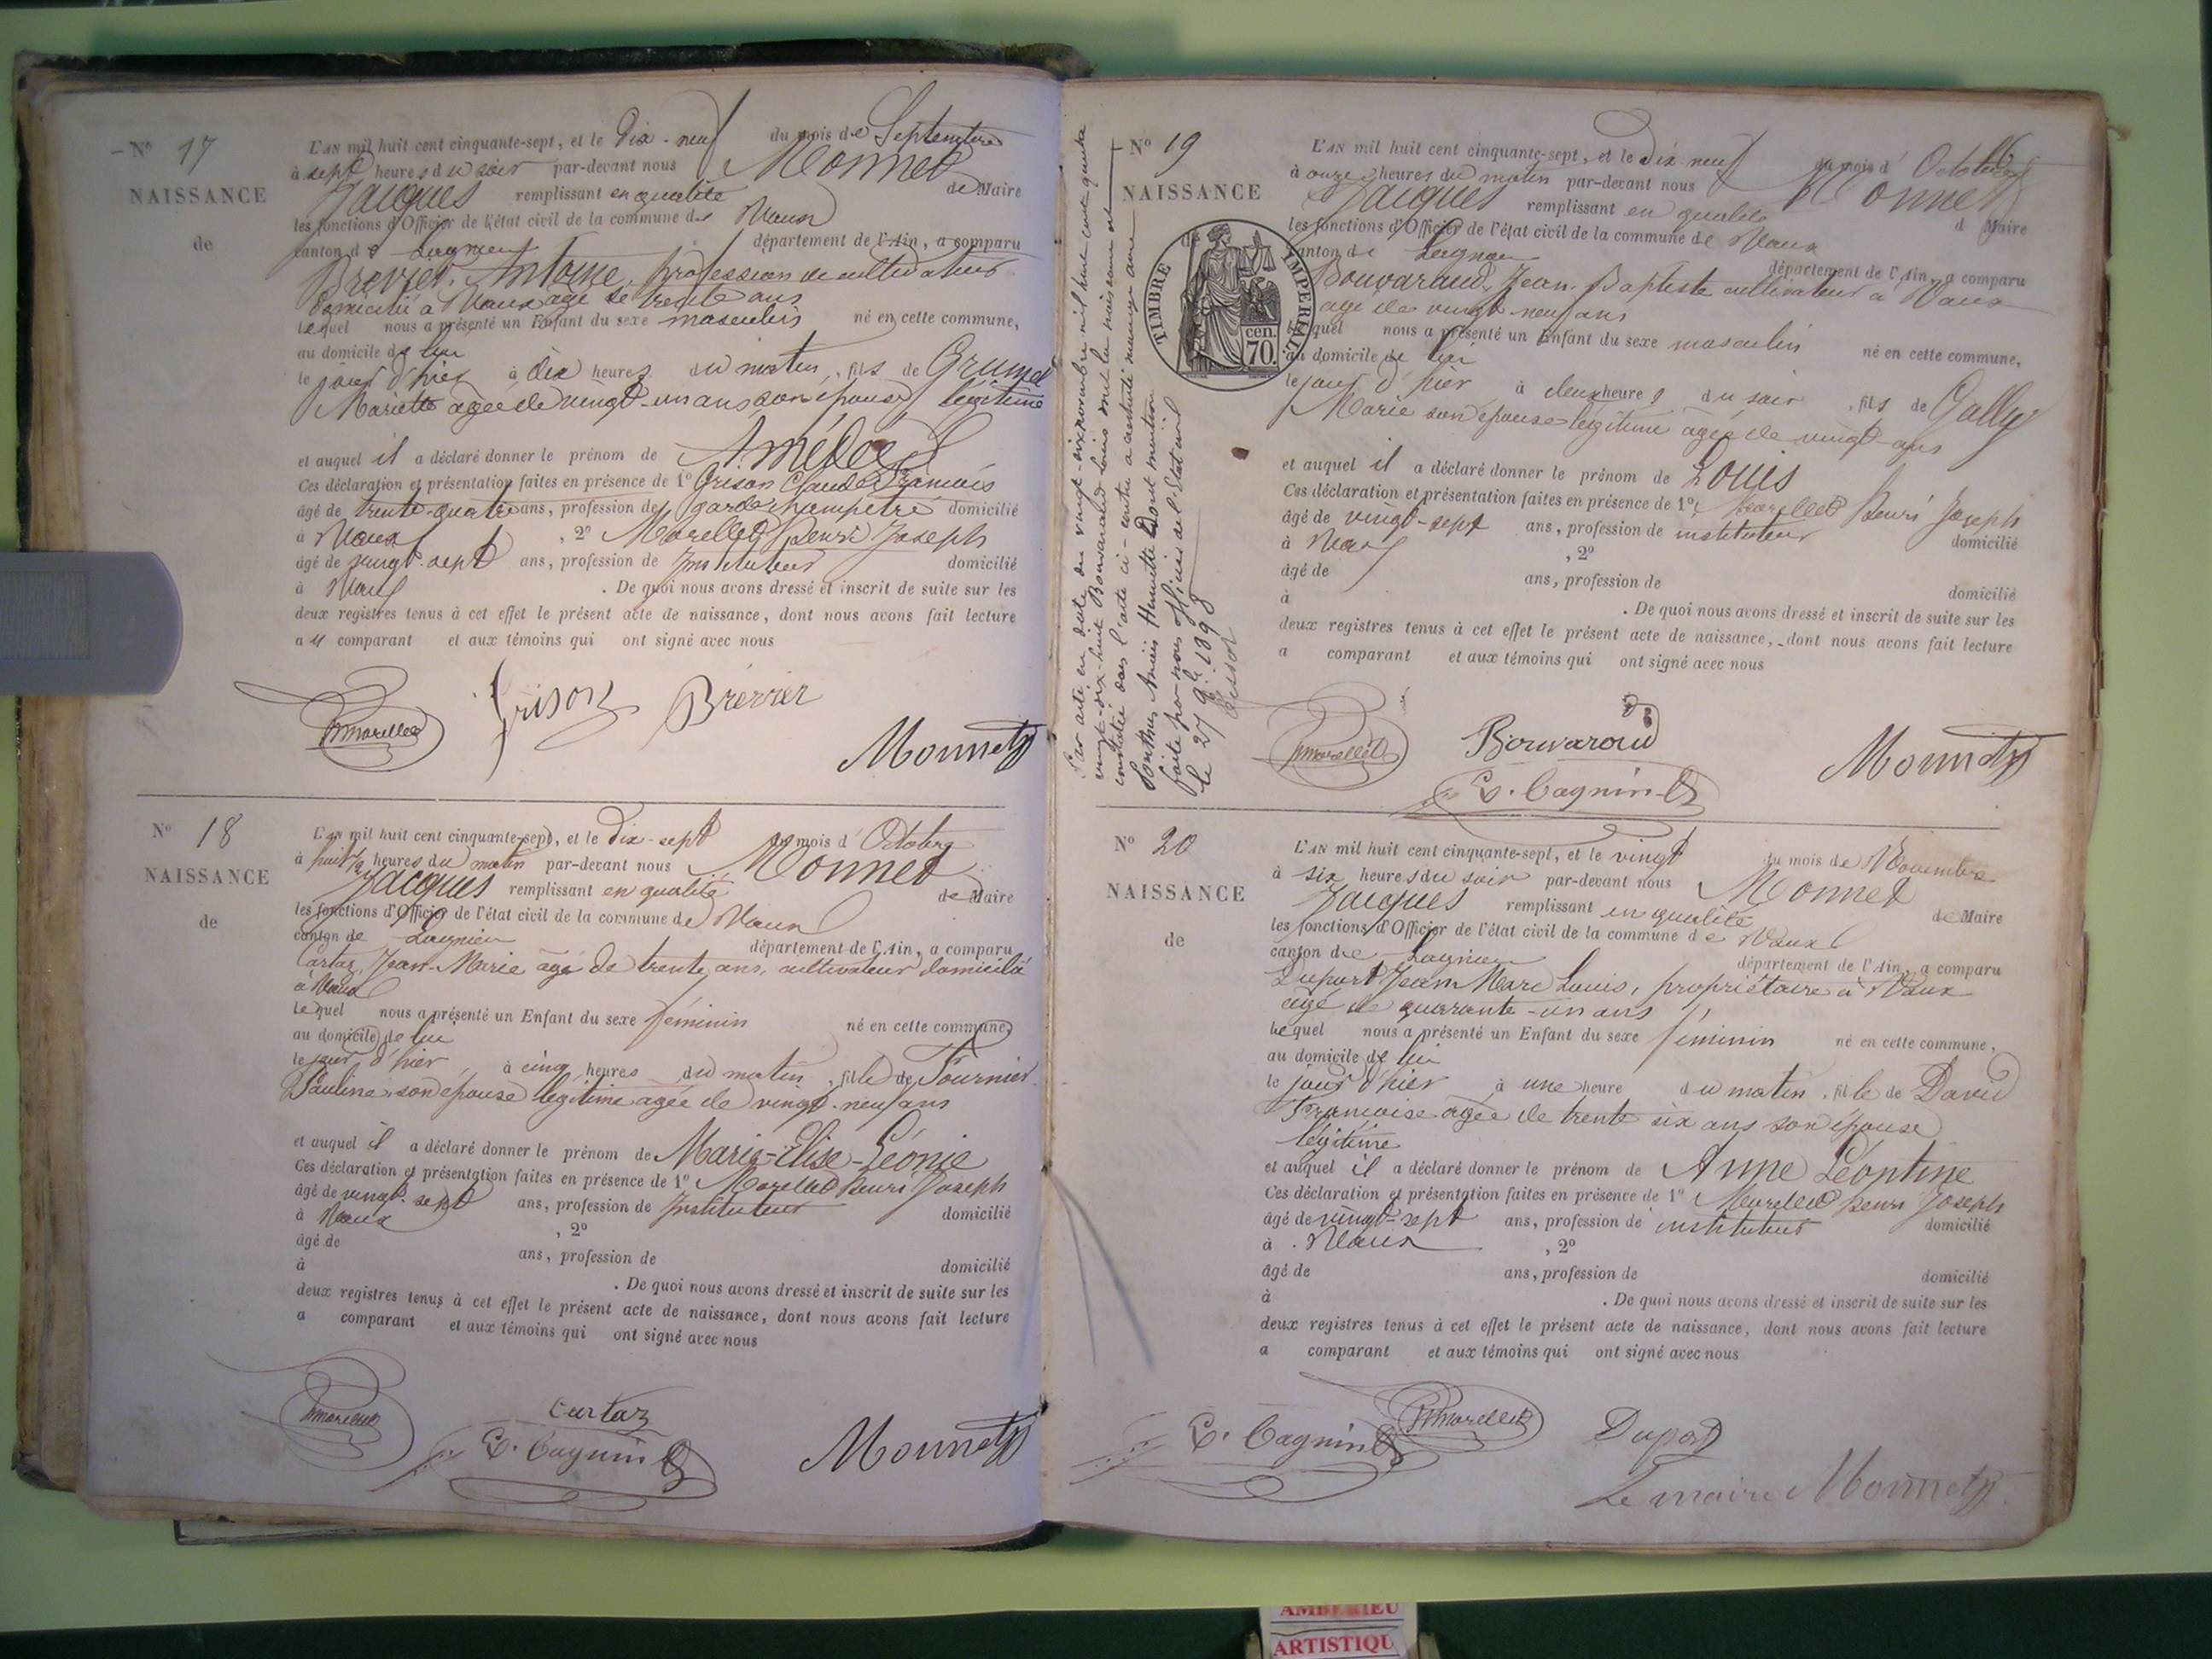 N° 17
NAISSANCE
de
L'AN mil huit cent cinquante-sept, et le Dix-neuf du mois de Septembre
à sept heures du soir par-devant nous Monnet
Jacques remplissant en qualité de Maire
les fonctions d'Officier de l'état civil de la commune de Vaux
canton de Lagnieu département de l'Ain, a comparu
Brevier Antoine, profession de cultivateur
domicilié à Vaux âgé de trente ans
Lequel nous a présenté un Enfant du sexe masculin né en cette commune,
au domicile de lui
le jour d'hier à dix heures du matin, fils de Grumel
Mariette agée de vingt-un ans son épouse légitime
et auquel il a déclaré donner le prénom de Amédée
Ces déclaration et présentation faites en présence de 1° Grison Claude François
âgé de trente-quatre ans, profession de garde champetre domicilié
à Vaux , 2° Morellet Henri Joseph
âgé de vingt-sept ans, profession de Instituteur domicilié
à Vaux . De quoi nous avons dressé et inscrit de suite sur les
deux registres tenus à cet effet le présent acte de naissance, dont nous avons fait lecture
au comparant et aux témoins qui ont signé avec nous
hmorellet Grison Brevier
Monnet
N° 18
NAISSANCE
de
L'AN mil huit cent cinquante-sept, et le Dix-sept du mois d' Octobre
à huit 1/2 heures du matin par-devant nous Monnet
Jacques remplissant en qualité de Maire
les fonctions d'Officier de l'état civil de la commune de Vaux
canton de Lagnieu département de l'Ain, a comparu
Cartaz, Jean-Marie agé de trente ans, cultivateur domicilié
à Vaux
Lequel nous a présenté un Enfant du sexe féminin né en cette commune,
au domicile de lui
le jour d'hier à cinq heures du matin, fille de Fournier
Pauline, son épouse légitime agée de vingt-neuf ans
et auquel il a déclaré donner le prénom de Marie-Elise-Léonie
Ces déclaration et présentation faites en présence de 1° Morellet Henri Joseph
âgé de vingt-sept ans, profession de Instituteur domicilié
à Vaux , 2°
âgé de ans, profession de domicilié
à . De quoi nous avons dressé et inscrit de suite sur les
deux registres tenus à cet effet le présent acte de naissance, dont nous avons fait lecture
a comparant et aux témoins qui ont signé avec nous
hmorellet Cartaz
C. Cagnin
Monnet
Par acte en date du vingt-six novembre mil huit cent quatre
vingt-dix-huit Bouvarand Louis dont la naissance est
constatée dans l'acte ci-contre a contracté mariage avec
Henriette Dont mention
faite par nous officier de l'Etat civil
le 27 9bre 1898
N° 19
NAISSANCE
de
TIMBRE IMPERIAL
cen.
70.
L'AN mil huit cent cinquante-sept, et le Dix neuf du mois d' Octobre
à onze heures du matin par-devant nous Monnet
Jacques remplissant en qualité d Maire
les fonctions d'Officier de l'état civil de la commune de Vaux
canton de Lagnieu département de l'Ain, a comparu
Bouvarand, Jean-Baptiste cultivateur à Vaux
agé de vingt-neuf ans
Lequel nous a présenté un Enfant du sexe masculin né en cette commune,
au domicile de lui
le jour d'hier à deux heures du soir, fils de Gally
Marie son épouse légitime agée de vingt-ans
et auquel il a déclaré donner le prénom de Louis
Ces déclaration et présentation faites en présence de 1° Morellet Henri Joseph
âgé de vingt-sept ans, profession de instituteur domicilié
à Vaux , 2°
âgé de ans, profession de domicilié
à . De quoi nous avons dressé et inscrit de suite sur les
deux registres tenus à cet effet le présent acte de naissance, dont nous avons fait lecture
a comparant et aux témoins qui ont signé avec nous
hmorellet Bouvarand
C. Cagnin
Monnet
N° 20
NAISSANCE
de
L'AN mil huit cent cinquante-sept, et le vingt du mois de Novembre
à six heures du soir par-devant nous Monnet
Jacques remplissant en qualité de Maire
les fonctions d'Officier de l'état civil de la commune de Vaux
canton de Lagnieu département de l'Ain, a comparu
Duport Jean Marc Louis, propriétaire à Vaux
agé de quarante-un ans
Lequel nous a présenté un Enfant du sexe féminin né en cette commune,
au domicile de lui
le jour d'hier à une heure du matin, fille de David
Françoise agée de trente six ans son épouse
légitime
et auquel il a déclaré donner le prénom de Anne Léontine
Ces déclaration et présentation faites en présence de 1° Morellet Henri Joseph
âgé de vingt-sept ans, profession de instituteur domicilié
à Vaux , 2°
âgé de ans, profession de domicilié
à . De quoi nous avons dressé et inscrit de suite sur les
deux registres tenus à cet effet le présent acte de naissance, dont nous avons fait lecture
a comparant et aux témoins qui ont signé avec nous
C. Cagnin hmorellet Duport
Le maire Monnet
AMBERIEU
ARTISTIQU